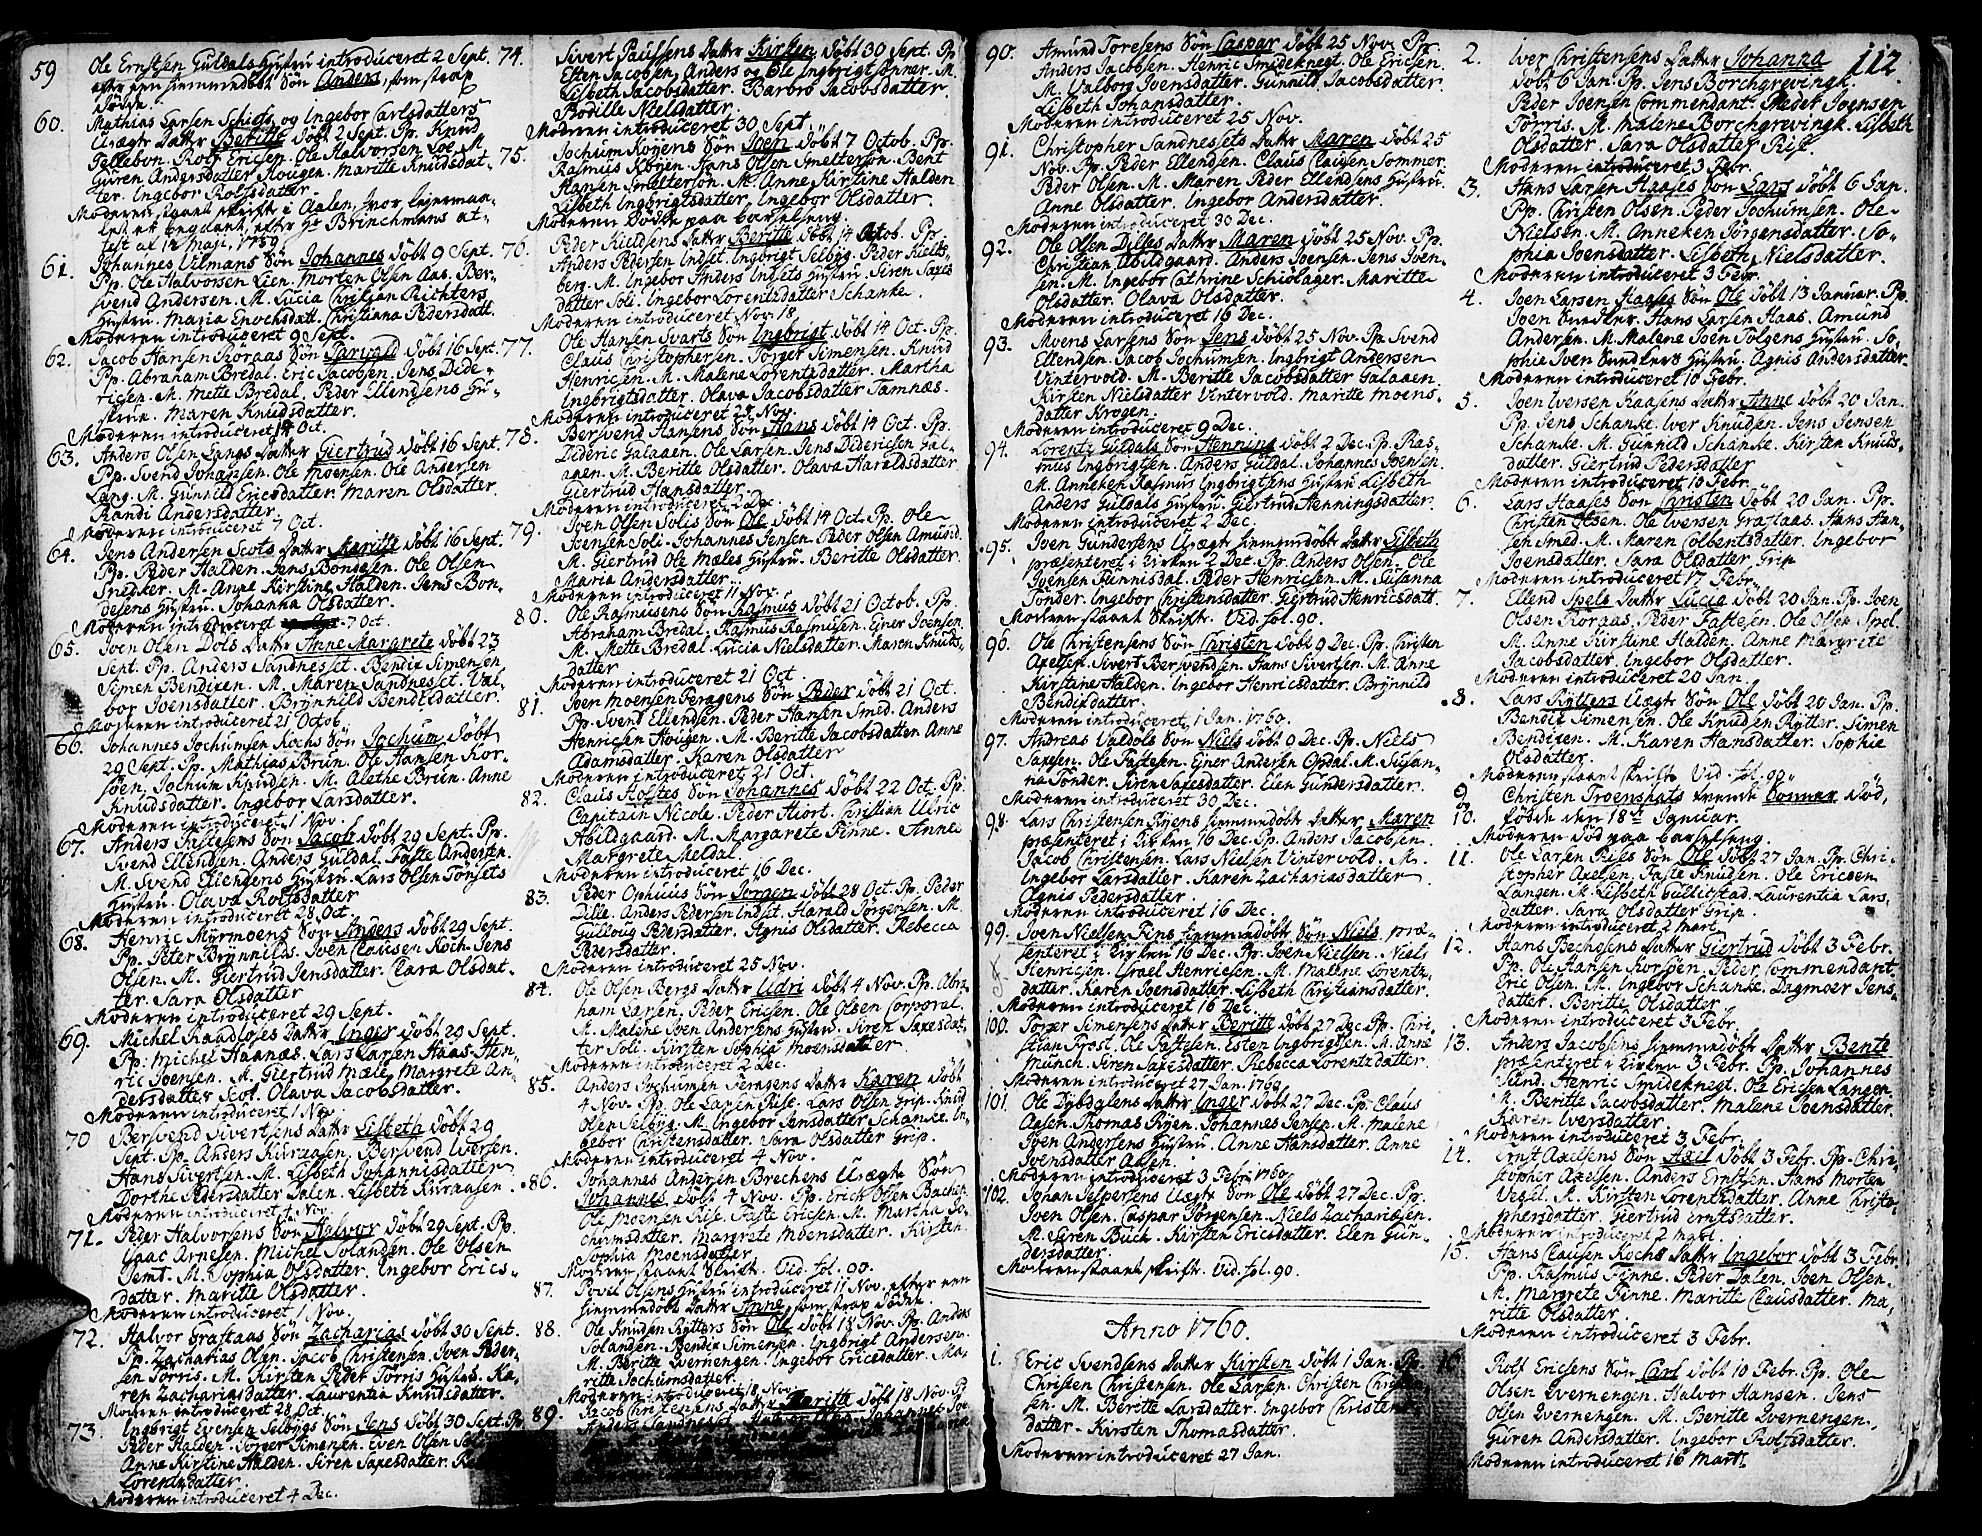 59 Ole Ernstsen Guldals Hustru introduceret 2 Sept.
efter een hiemmedöbt Sön Anders, som strax
döde.
60. Mathias Larsen Schiefs og Ingebor Carlsdatters
Uægte Datter Beritte döbt 2 Sept. Pp. Knud
Tellebon. Rolf Ericsen. Ole Halvorsen Loe. M.
Guren Andersdatter Hougen. Maritte Knudsdat-
ter. Ingebor Rolfsdatter.
Moderen staaet skrifte i Aalen, hvor leierman-
let et begaaet, efter Hr Brinchmans at-
test af 12 Maji, 1759.
61. Johannes Vilmans Sön Johannes döbt 9 Sept.
Pp. Ole Halvorsen Lien. Morten Olsen Aas. Ber-
svend Andersen. M. Lucia Christian Richters
Hustru. Maria Enochsdatt. Christiana Pedersdatt.
Moderen introduceret 9 Sept.
62. Jacob Hansen Koraas Sön Tarvald döbt 16 Sept.
Pp. Abraham Bredal. Eric Jacobsen. Jens Dide-
ricsen. M. Mette Bredal. Peder Ellendsens Hu-
stru. Maren Knudsdatter.
Moderen introduceret 14 Oct.
63. Anders Olsen Langs Datter Giertrud döbt 16 Sept.
Pp. Svend Johansen. Ole Moensen. Ole Andersen
Lang. M. Gunnild Ericsdatter. Maren Olsdatter.
Randi Andersdatter.
Moderen introduceret 7 Oct.
64. Jens Andersen Scots Datter Maritte döbt 16 Sept.
Pp. Peder Halden. Jens Bondesen. Ole Olsen
Snedker. M. Anne Kirstine Halden. Jens Bon-
desens Hustru. Johanna Olsdatter.
Moderen introduceret 7 Oct.
65. Joen Olsen Dols Datter Anne Margrete döbt 23
Sept. Pp. Anders Sandnesset. Bendix Simensen
Simen Bendixen. M. Maren Sandnesset. Val-
bor Joensdatter. Brynnild Bendixdatter.
Moderen introduceret 21 Octob.
66. Johannes Jochumsen Kochs Sön Jochum döbt
29 Sept. Pp. Mathias Brun. Ole Hansen Kor-
söen. Jochum Knudsen. M. Alethe Brun. Anne
Knudsdatter. Ingebor Larsdatter.
Moderen introduceret 1 Nov.
67. Anders Fastesens Sön Jacob döbt 29 Sept. Pp.
Svend Ellendsen. Anders Guldal. Faste Andersen.
M. Svend Ellendsens Hustru. Lars Olsen Tönsets
Hustru. Olava Rolfsdatter
Moderen introduceret 28 Oct.
68. Henric Myrmoens Sön Anders döbt 29 Sept.
Pp. Peter Brynnilds. Joen Clausen Koch. Jens
Olsen. M. Giertrud Jensdatter. Clara Olsdat-
ter. Sara Olsdatter
Moderen introduceret 29 Sept.
69. Michel Raadloses Datter Inger döbt 29 Sept.
Pp. Michel Haanæs. Lars Larsen Haas. Hen-
ric Joensen. M. Giertrud Mæle. Margrete An-
dersdatter Scot. Olava Jacobsdatter.
Moderen introduceret 1 Nov.
70 Bersvend Sivertsens Datter Lisbeth döbt 29
Sept. Pp. Anders Kuraasen. Bersvend Iversen.
Hans Sivertsen. M. Lisbeth Johannisdatter
Dorthe Pedersdatter Dalen. Lisbeth Kuraasen.
Moderen introduceret 4 Nov.
71. Peder Halvorsens Sön Halvor döbt 29 Sept. Pp.
Isaac Arnesen. Michel Solandsen. Ole Olsen
Jemt. M. Sophia Olsdatter. Ingebor Erics-
datter. Maritte Olsdatter
Moderen introduceret 1 Nov.
72. Halvor Grastaas Sön Zacharias döbt 30 Sept.
Pp. Zacharias Olsen. Jacob Christensen. Joen Peder-
sen Torris. M. Kirsten Peder Torris Hustru. Ka-
ren Zachariasdatter. Laurentia Knudsdatter.
Moderen introduceret 28 Oct.
73. Ingbrigt Evensen Selbygs Sön Jens döbt 30 Sept. Pp.
Peder Halden. Jörger Simensen. Even Olsen
Anne Kirstine Halden. Siren Saxesdatter.
Lorentzdatter.
Moderen introduceret 4 Dec.
74. Sivert Paulsens Datter Kirsten döbt 30 Sept. Pp
Esten Jacobsen, Anders og Ole Ingbrigtsönner. M.
Lisbeth Jacobsdatter. Barbro Jacobsdatter.
Bodille Nielsdatter.
Moderen introduceret 30 Sept
75. Jochum Konens Sön Joen döbt 7 Octob. Pp.
Rasmus Konen. Hans Olsen Smelterson. Bent
Hansen Smelterson. M. Anne Kirstine Halden
Lisbeth Ingbrigtsdatter. Ingebor Olsdatter
Moderen döde paa barselseng.
76. Peder Kieldsens Datter Beritte döbt 14 Octob. Pp.
Anders Pedersen Indset. Ingbrigt Selbyg. Peder Kields-
berg. M. Ingebor Anders Indsets Hustru. Siren Saxes
datter Soli. Ingebor Lorentzdatter Schanke.
Moderen introduceret Nov. 18
77. Ole Hansen Svarts Sön Ingbrigt döbt 14 Oct. Pp.
Claus Christophersen. Jörger Simensen. Knud
Henricsen. M. Malene Lorentzdatter. Martha
Ingbrigtsdatter. Olava Jacobsdatter Tamnæs.
Moderen introduceret 25 Nov.
78. Bersvend Hansens Sön Hans döbt 14 Oct. Pp.
Dideric Galaaen. Ole Larsen. Jens Didericsen Gal-
aaen. M. Beritte Olsdatter. Olava Haraldsdatter
Giertrud Hansdatter.
Moderen introduceret 2 Dec.
79. Joen Olsen Solis Sön Ole döbt 14 Oct. Pp. Ole
Joensen Soli. Johannes Jensen. Peder Olsen Amund.
M. Giertrud Ole Mæles Hustru. Beritte Olsdatter.
Maria Andersdatter.
Moderen introduceret 11 Nov.
80. Ole Rasmusens Sön Rasmus döbt 21 Octob. Pp.
Abraham Bredal. Rasmus Rasmusen. Einer Joensen.
M. Mette Bredal. Lucia Nielsdatter. Maren Knuds-
datter
Moderen introduceret 21 Oct.
81. Joen Moensen Feragens Sön Peder döbt 21 Oct.
Pp. Svend Ellendsen. Peder Hansen Smed. Anders
Henricsen Hougen. M. Beritte Jacobsdatter. Anne
Adamsdatter. Karen Olsdatter
Moderen introduceret 21 Oct.
82. Claus Holstes Sön Johannes döbt 22 Oct. Pp.
Capitain Nicole. Peder Hiort. Christian Ulric
Abildgaard. M. Margarete Finne. Anne
Margrete Meldal.
Moderen introduceret 16 Dec.
83. Peder Ophuus Sön Jörgen döbt 28 Oct. Pp. Peder
Dille. Anders Pedersen Indset. Harald Jörgensen. M.
Gullovig Pedersdatter. Agnis Olsdatter. Rebecca
Pedersdatter
Moderen introduceret 25 Nov.
84. Ole Olsen Bergs Datter Udri döbt 4 Nov. Pp. Abra-
ham Larsen. Peder Ericsen. Ole Olsen Corporal.
M. Malene Joen Andersens Hustru. Siren Saxesdat-
ter Soli. Kirsten Sophia Moensdatter
Moderen introduceret 2 Dec.
85. Anders Jochumsen Feragens Datter Karen döbt
4 Nov. Pp. Ole Larsen Rise. Lars Olsen Grip. Knud
Olsen Selbyg. M. Ingebor Jensdatter Schanke. In-
gebor Christensdatter. Sara Olsdatter Grip.
Moderen introduceret 4 Nov.
86. Johannes Andersen Brechens Uægte Sön
Johannes döbt 4 Nov. Pp. Erich Olsen Bachen
Ole Moensen Rise. Faste Ericsen. M. Martha Jo-
chumsdatter. Margrete Moensdatter. Kirsten
Sophia Moensdatter
Moderen staaet Skrift. Vid. fol. 90.
87. Povel Olsens Hustru introduceret 11 Nov. efter een
hiemmedöbt Datter Anne, som strax döde.
88. Ole Knudsen Rytters Sön Ole döbt 18 Nov. Pp. Anders
Solandsen. Bendix Siminsen. Ingbrigt Andersen.
M. Beritte Qvernengen. Ingebor Ericsdatter. Ma-
ritte Jochumsdatter.
Moderen introduceret 18 Nov.
89. Jacob Christensens Datter Maritte döbt 18 Nov. Pp.
90. Amund Toresens Sön Caspar döbt 25 Nov. Pp.
Anders Jacobsen. Henric Smideknegt. Ole Ericsen.
M. Valborg Joensdatter. Gunnild Jacobsdatter.
Lisbeth Johansdatter.
Moderen introduceret 25 Nov.
91. Christopher Sandnessets Datter Maren döbt 25
Nov. Pp. Peder Ellendsen. Claus Clausen Sommer.
Peder Olsen. M. Maren Peder Ellendsens Hustru.
Anne Olsdatter. Ingebor Andersdatter.
Moderen introduceret 30 Dec.
92. Ole Olsen Dilles Datter Maren döbt 25 Nov. Pp.
Christian Abildgaard. Anders Joensen. Jens Joen-
sen. M. Ingebor Cathrine Schiölager. Maritte
Olsdatter. Olava Olsdatter.
Moderen introduceret 16 Dec.
93. Moens Larsens Sön Jens döbt 25 Nov. Pp. Svend
Ellendsen. Jacob Jochumsen. Ingbrigt Andersen
Vintervold. M. Beritte Jacobsdatter Galaaen.
Kirsten Nielsdatter Vintervold. Maritte Moens-
datter Krogen.
Moderen introduceret 9 Dec.
94. Lorentz Guldals Sön Henning döbt 2 Dec. Pp. Ras-
mus Ingbrigtsen. Anders Guldal. Johannes Joensen.
M. Anneken Rasmus Ingbrigtsens Hustru. Lisbeth
Anders Guldals Hustru. Giertrud Henningsdatter.
Moderen introduceret 2 Dec.
95. Joen Gundersens Uægte hiemmedöbte Datter Lisbeth
præsenteret i Kirken 2 Dec. Pp. Anders Olsen. Ole
Joensen Funnisdal. Peder Henricsen. M. Susanna
Tönder. Ingebor Christensdatter. Giertrud Henricsdatt.
Moderen staaet Skrift. Vid. fol. 90.
96. Ole Christensens Sön Christen döbt 9 Dec. Pp. Christen
Axelsen. Sivert Bersvendsen. Hans Sivertsen. M. Anne
Kirstine Halden. Ingebor Henricsdatter. Brynnild
Bendixdatter.
Moderen introduceret, 1 Jan. 1760.
97. Andreas Valdols Sön Niels döbt 9 Dec. Pp. Niels
Saxsen. Ole Fastesen. Einer Andersen Opdal. M. Susan-
na Tönder. Siren Saxesdatter. Elen Gundersdatter.
Moderen introduceret 30 Dec.
98. Lars Christensen Ryens hiemmedöbte Datter Maren
præsenteret i Kirken 16 Dec. Pp. Anders Jacobsen.
Jacob Christensen. Lars Nielsen Vintervold. M.
Ingebor Larsdatter. Karen Zachariasdatter
Agnis Pedersdatter.
Moderen introduceret 16 Dec.
99. Joen Nielsen Fins hiemmedöbte Sön Niels præ-
senteret i Kirken 16 Dec. Pp. Joen Nielsen. Niels
Henricsen. Israel Henricsen. M. Malene Lorentz-
datter. Karen Joensdatter. Lisbeth Christiansdatter.
Moderen introduceret 16 Dec.
100. Jörger Simensens Datter Beritte döbt 27 Dec. Pp. Chri-
stian Prost. Ole Fastesen. Esten Ingbrigtsen. M. Anne
Munch. Siren Saxesdatter. Rebecca Lorentzdatter.
Moderen introduceret 27 Jan. 1760
101. Ole Dybdalens Datter Inger döbt 27 Dec. Pp. Claus
Aasen. Thomas Ryen. Johannes Jensen. M. Malene
Joen Andersens Hustru. Anne Hansdatter. Anne
Joensdatter Aasen.
Moderen introduceret 3 Febr. 1760
102. Johan Jespersens Uægte Sön Ole döbt 27 Dec. Pp.
Joen Olsen. Caspar Jörgensen. Niels Zachariasen.
M. Karen Buch. Kirsten Ericsdatter. Elen Gun-
dersdatter.
Moderen staaet skrift. Vid. fol. 90.
Anno 1760.
1. Eric Svendsens Datter Kirsten döbt 1 Jan. Pp.
Christen Christensen. Ole Larsen. Christen Christen-
sen. M. Beritte Larsdatter. Ingebor Christens-
datter. Kirsten Thomasdatter.
Moderen introduceret 27 Jan.
112
2. Iver Christensens Datter Johanna
döbt 6 Jan. Pp. Jens Borchgrevingk.
Peder Joensen Commendant. Peder Joensen
Törris. M. Malene Borchgrevingk. Lisbeth
Olsdatter. Sara Olsdatter Rise.
Moderen introduceret 3 Febr.
3. Hans Larsen Haases Sön Lars döbt 6 Jan.
Pp. Christen Olsen. Peder Jochumsen. Ole
Nielsen. M. Anneken Jörgensdatter. So-
phia Joensdatter. Lisbeth Nielsdatter.
Moderen introduceret 3 Febr.
4. Joen Larsen Haases Sön Ole döbt 13 Januar. Pp.
Joen Snedker. Hans Larsen Haas. Amund
Andersen. M. Malene Joen Tolgens Hustru. So-
phie Joen Snedkers Hustru. Agnis Andersdatter.
Moderen introduceret 10 Febr.
5. Joen Iversen Kaasens Datter Anne döbt 20 Jan.
Pp. Jens Schanke. Iver Knudsen. Jens Jensen
Schanke. M. Gunnild Schanke. Kirsten Knuds-
datter. Giertrud Pedersdatter
Moderen introduceret 10 Febr.
6. Lars Haases Sön Christen döbt 20 Jan. Pp.
Christen Olsen. Ole Iversen Graslaas. Hans Han-
sen Smed. M. Maren Colbentsdatter. Ingebor
Joensdatter. Sara Olsdatter Grip
Moderen introduceret 17 Febr.
7. Ellend Spels Datter Lucia döbt 20 Jan. Pp. Joen
Olsen Koraas. Peder Fastesen. Ole Olsen Spel.
M. Anne Kirstine Halden. Anne Margrete
Jacobsdatter. Ingebor Olsdatter.
Moderen introduceret 20 Jan.
8. Lars Rytters Uægte Sön Ole döbt 20 Jan. Pp.
Bendix Simensen. Ole Knudsen Rytter. Simen
Bendixen. M. Karen Hansdatter. Sophie
Olsdatter.
Moderen staaet skrifte Vid. fol. 90.
9 og Christen Troenshats tvende Sönner död,
10. födde den 18de Januar.
Moderen död paa barselseng.
11. Ole Larsen Rises Sön Ole döbt 27 Jan. Pp. Chri-
stopher Axelsen. Faste Knudsen. Ole Ericsen
Langen. M. Lisbeth Gullicstad. Laurentia Lars-
datter. Sara Olsdatter Grip.
Moderen introduceret 2 Mart.
12. Hans Bechelens Datter Giertrud döbt 3 Febr.
Pp. Ole Hansen Korsöen. Peder Commendant.
Eric Olsen. M. Ingebor Schanke. Dagmoer Jens-
datter. Beritte Olsdatter
Moderen introduceret 3 Febr.
13. Anders Jacobsens hiemmedöbte Datter Bente
præsenteret i Kirken 3 Febr. Pp. Johannes
Lund. Henric Smideknegt. Ole Ericsen Langen.
M. Beritte Jacobsdatter. Malene Joensdatter.
Karen Iversdatter
Moderen introduceret 3 Febr.
14. Ernst Axelsens Sön Axel döbt 3 Febr. Pp. Chri-
stopher Axelsen. Anders Ernstsen. Hans Morten
Vesel. M. Kirsten Lorentzdatter. Anne Christo-
phersdatter. Giertrud Ernstsdatter.
Moderen introduceret 2 Mart.
15. Hans Clausen Kochs Datter Ingebor döbt 3 Febr.
Pp. Rasmus Finne. Peder Dalen. Joen Olsen.
M. Margrete Finne. Maritte Clausdatter. Ma-
ritte Olsdatter
Moderen introduceret 3 Febr.
16. Rolf Ericsens Sön Carl döbt 10 Febr. Pp. Ole
Olsen Qvernengen. Halvor Hansen. Jens
Olsen Qvernengen. M. Beritte Qvernengen.
Guren Andersdatter. Ingebor Rolfsdatter.
Moderen introduceret 16 Mart.